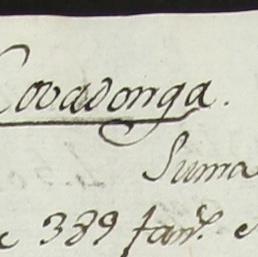 Covadonga.
Suma
389